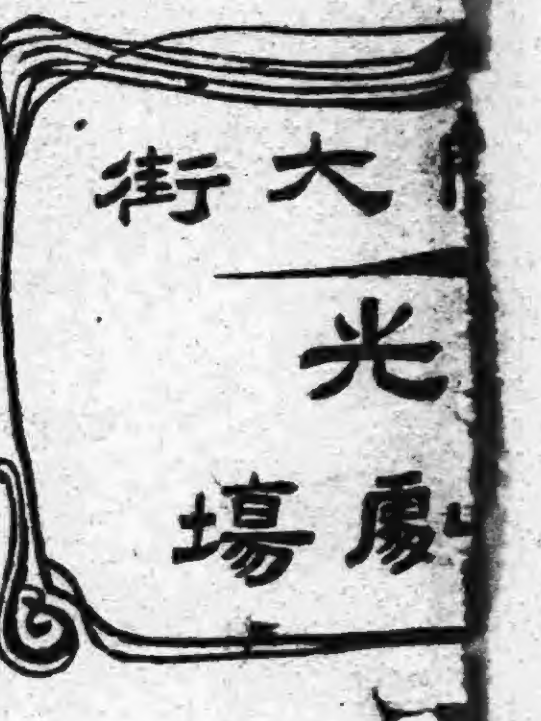 大街
光
劇塲